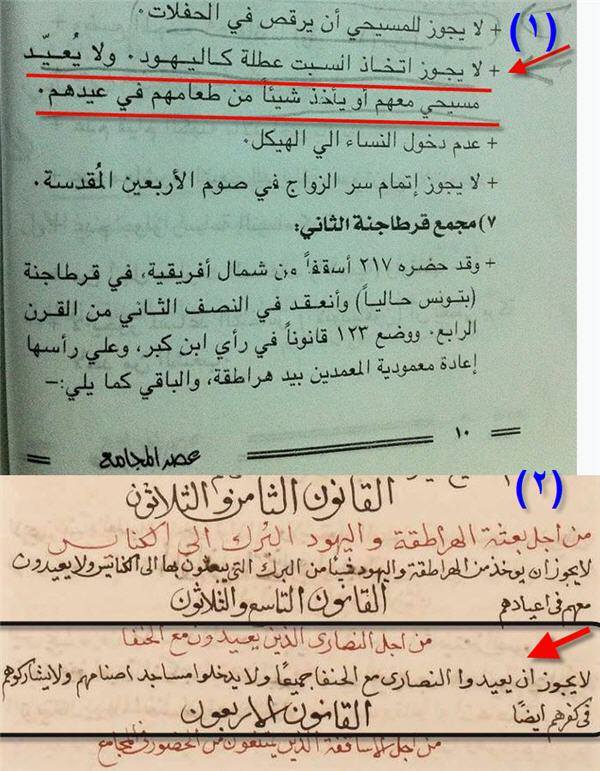 (١)
+ لا يجوز للمسيحي أن يرقص في الحفلات٠
+ لا يجوز اتخاذ السبت عطلة كاليهود٠ ولا يُعيّد
مسيحي معهم أو يأخذ شيئاً من طعامهم في عيدهم٠
+ عدم دخول النساء الي الهيكل٠
+ لا يجوز إتمام سر الزواج في صوم الأربعين المُقدسة٠
٧) مجمع قرطاجنة الثاني:
+ وقد حضره ٢١٧ أسقفاً من شمال أفريقية، في قرطاجنة
(بتونس حالياً) وأنعقد في النصف الثاني من القرن
الرابع٠ ووضع ١٢٣ قانوناً في رأي ابن كبر، وعلي رأسها
إعادة معمودية المعمدين بيد هراطقة، والباقي كما يلي:-
١٠
عصر المجامع
(٢)
القانون الثامن والثلاثون
من اجل بعثة الهراطقة واليهود البرك الى الكنايس
لايجوز ان يوخذ من الهراطقة واليهود فينا من البرك التي يبعثون بها الى الكنايس ولا يعيدون
معهم في اعيادهم
القانون التاسع والثلاثون
من اجل النصارى الذين يعيدون مع الحنفا
لايجوز ان يعيدوا النصارى مع الحنفا جميعًا ولا يدخلوا مساجد اصنامهم ولا يشاركوهم
في كفرهم ايضًا
القانون الاربعون
من اجل الاساقفة الذين يمتنعون من الحضور في المجامع